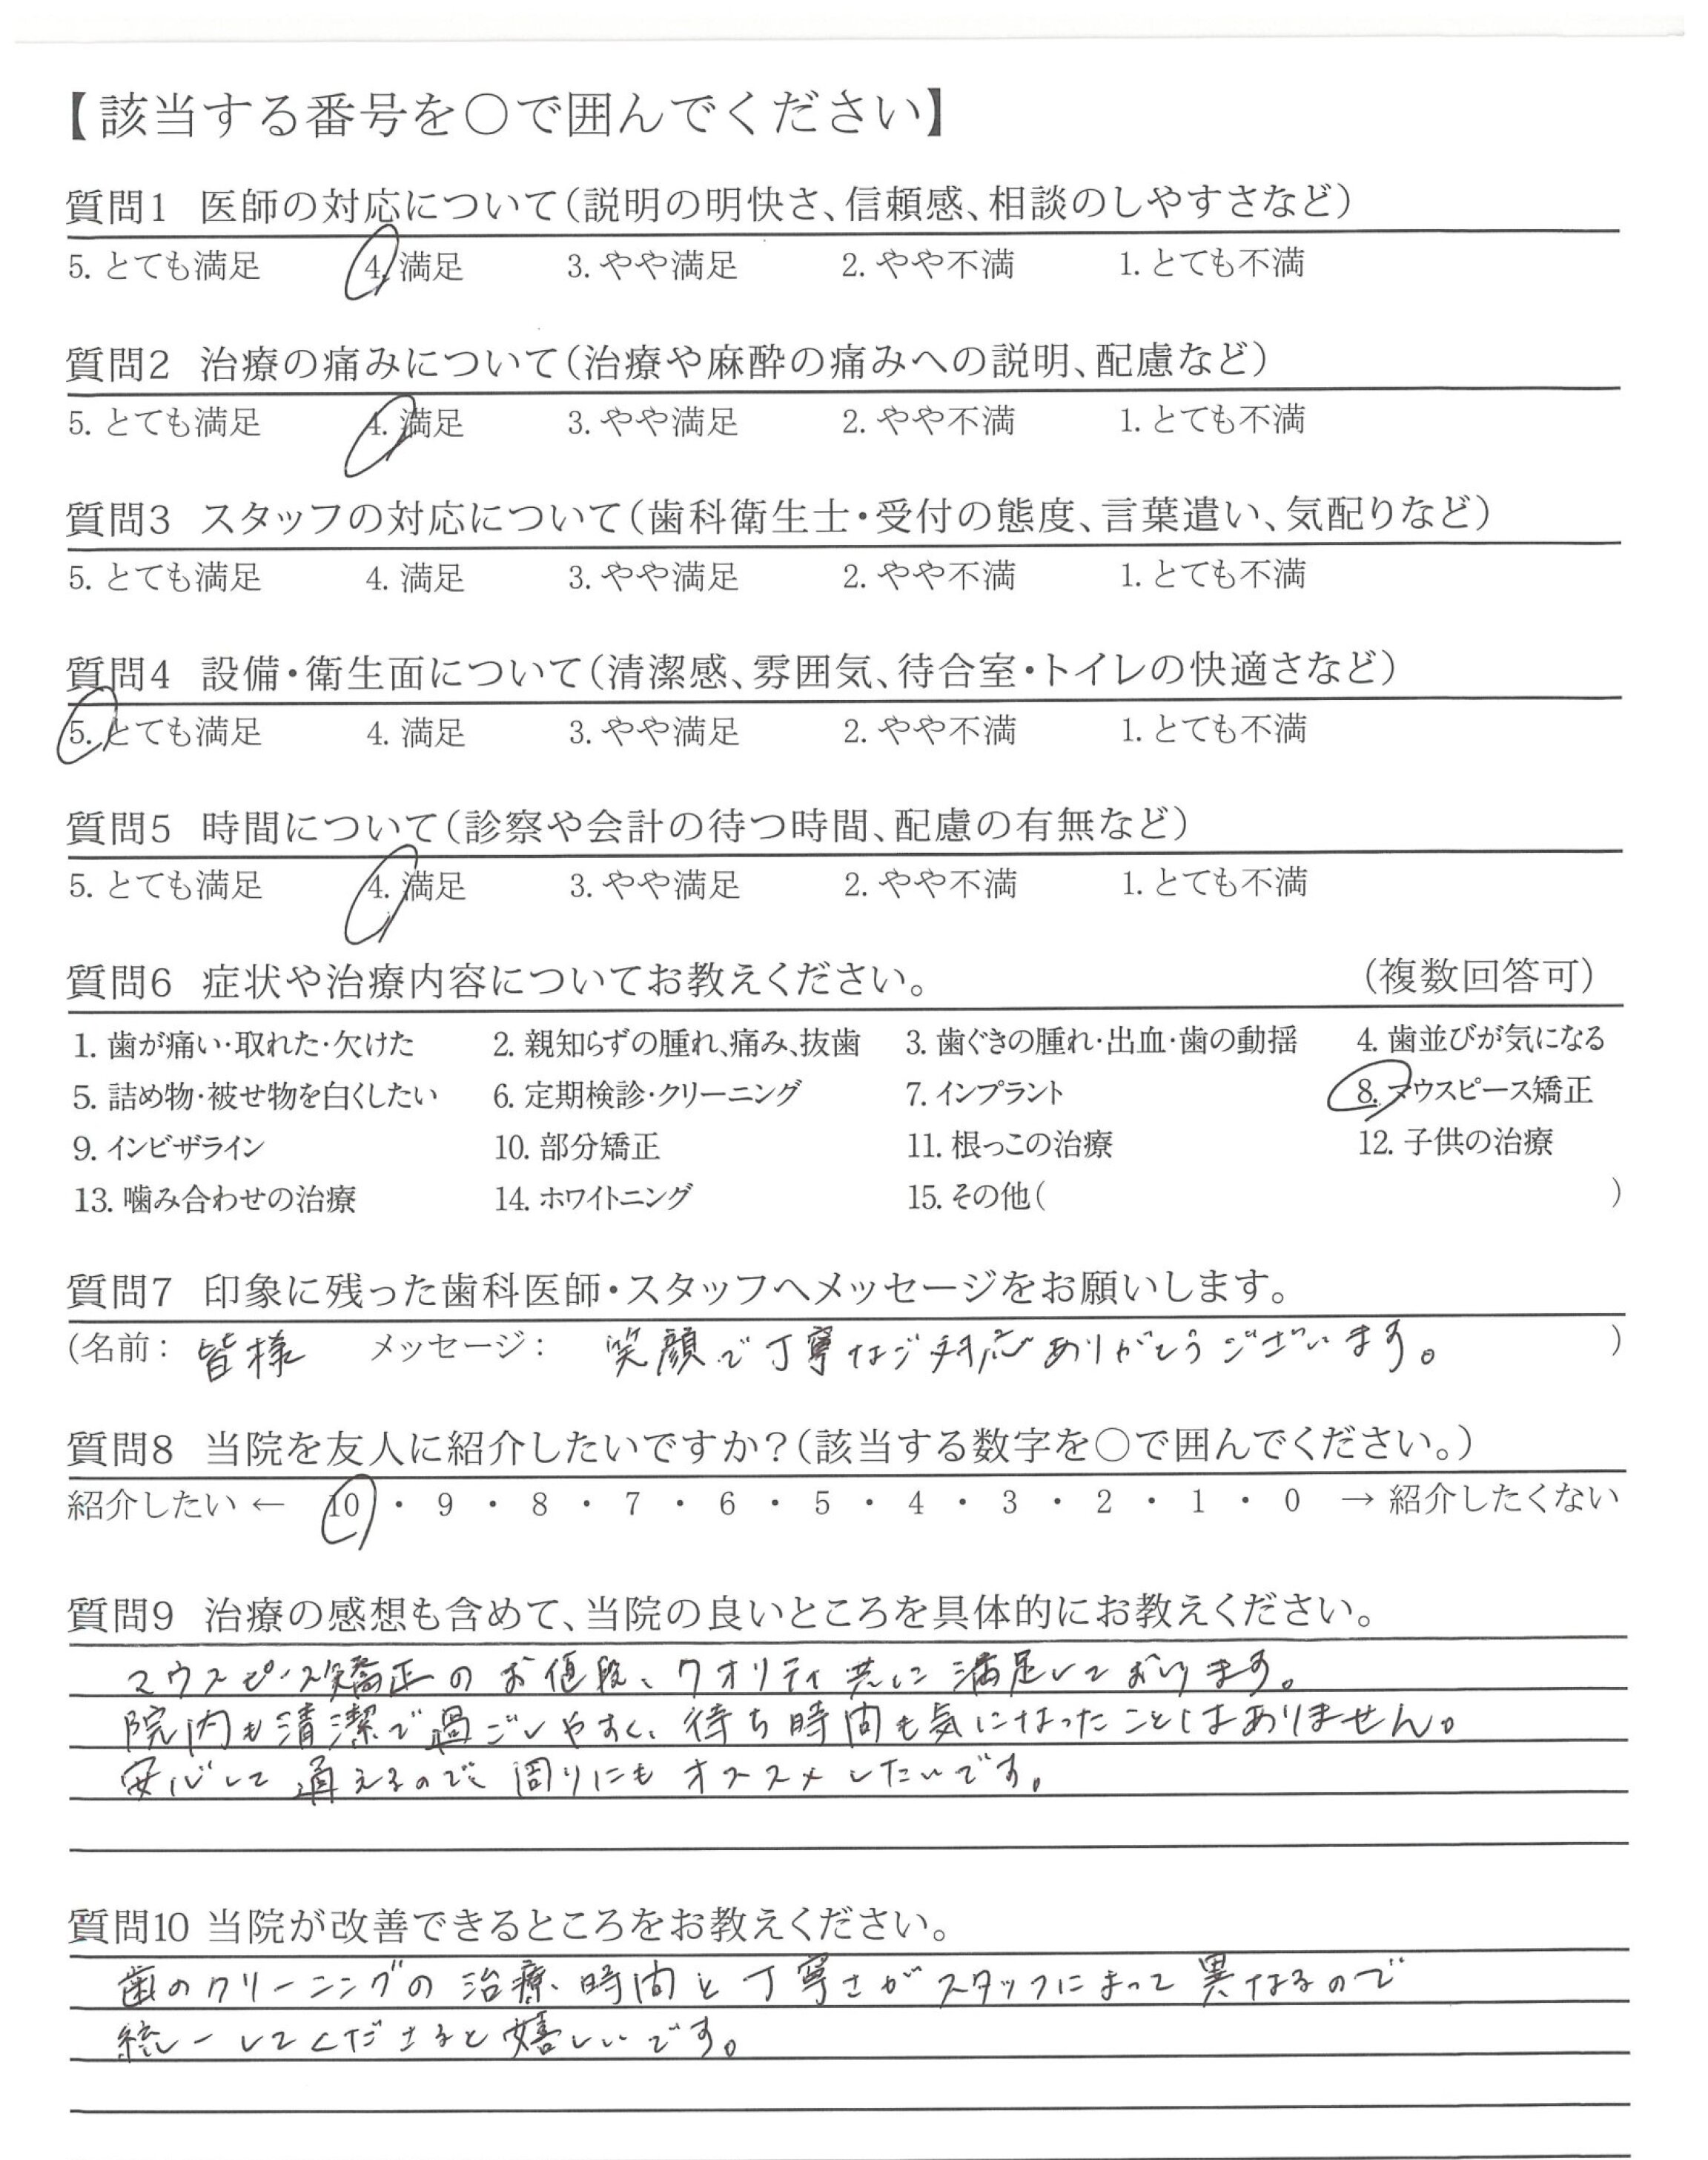 【該当する番号を○で囲んでください】
質問1 医師の対応について(説明の明快さ、信頼感、相談のしやすさなど)
5. とても満足 4. 満足 3. やや満足 2. やや不満 1. とても不満
質問2 治療の痛みについて(治療や麻酔の痛みへの説明、配慮など)
5. とても満足 4. 満足 3. やや満足 2. やや不満 1. とても不満
質問3 スタッフの対応について(歯科衛生士・受付の態度、言葉遣い、気配りなど)
5. とても満足 4. 満足 3. やや満足 2. やや不満 1. とても不満
質問4 設備・衛生面について(清潔感、雰囲気、待合室・トイレの快適さなど)
5. とても満足 4. 満足 3. やや満足 2. やや不満 1. とても不満
質問5 時間について(診察や会計の待つ時間、配慮の有無など)
5. とても満足 4. 満足 3. やや満足 2. やや不満 1. とても不満
質問6 症状や治療内容についてお教えください。 (複数回答可)
1. 歯が痛い・取れた・欠けた 2. 親知らずの腫れ、痛み、抜歯 3. 歯ぐきの腫れ・出血・歯の動揺 4. 歯並びが気になる
5. 詰め物・被せ物を白くしたい 6. 定期検診・クリーニング 7. インプラント 8. マウスピース矯正
9. インビザライン 10. 部分矯正 11. 根っこの治療 12. 子供の治療
13. 噛み合わせの治療 14. ホワイトニング 15. その他( )
質問7 印象に残った歯科医師・スタッフへメッセージをお願いします。
(名前: 皆様 メッセージ: 笑顔で丁寧なご対応ありがとうございます。 )
質問8 当院を友人に紹介したいですか?(該当する数字を○で囲んでください。)
紹介したい ← 10 ・ 9 ・ 8 ・ 7 ・ 6 ・ 5 ・ 4 ・ 3 ・ 2 ・ 1 ・ 0 → 紹介したくない
質問9 治療の感想も含めて、当院の良いところを具体的にお教えください。
マウスピース矯正のお値段、クオリティ共に満足しております。
院内も清潔で過ごしやすく、待ち時間も気になったことはありません。
安心して通えるので、周りにもオススメしたいです。
質問10 当院が改善できるところをお教えください。
歯のクリーニングの治療時間と丁寧さがスタッフによって異なるので
統一してくださると嬉しいです。